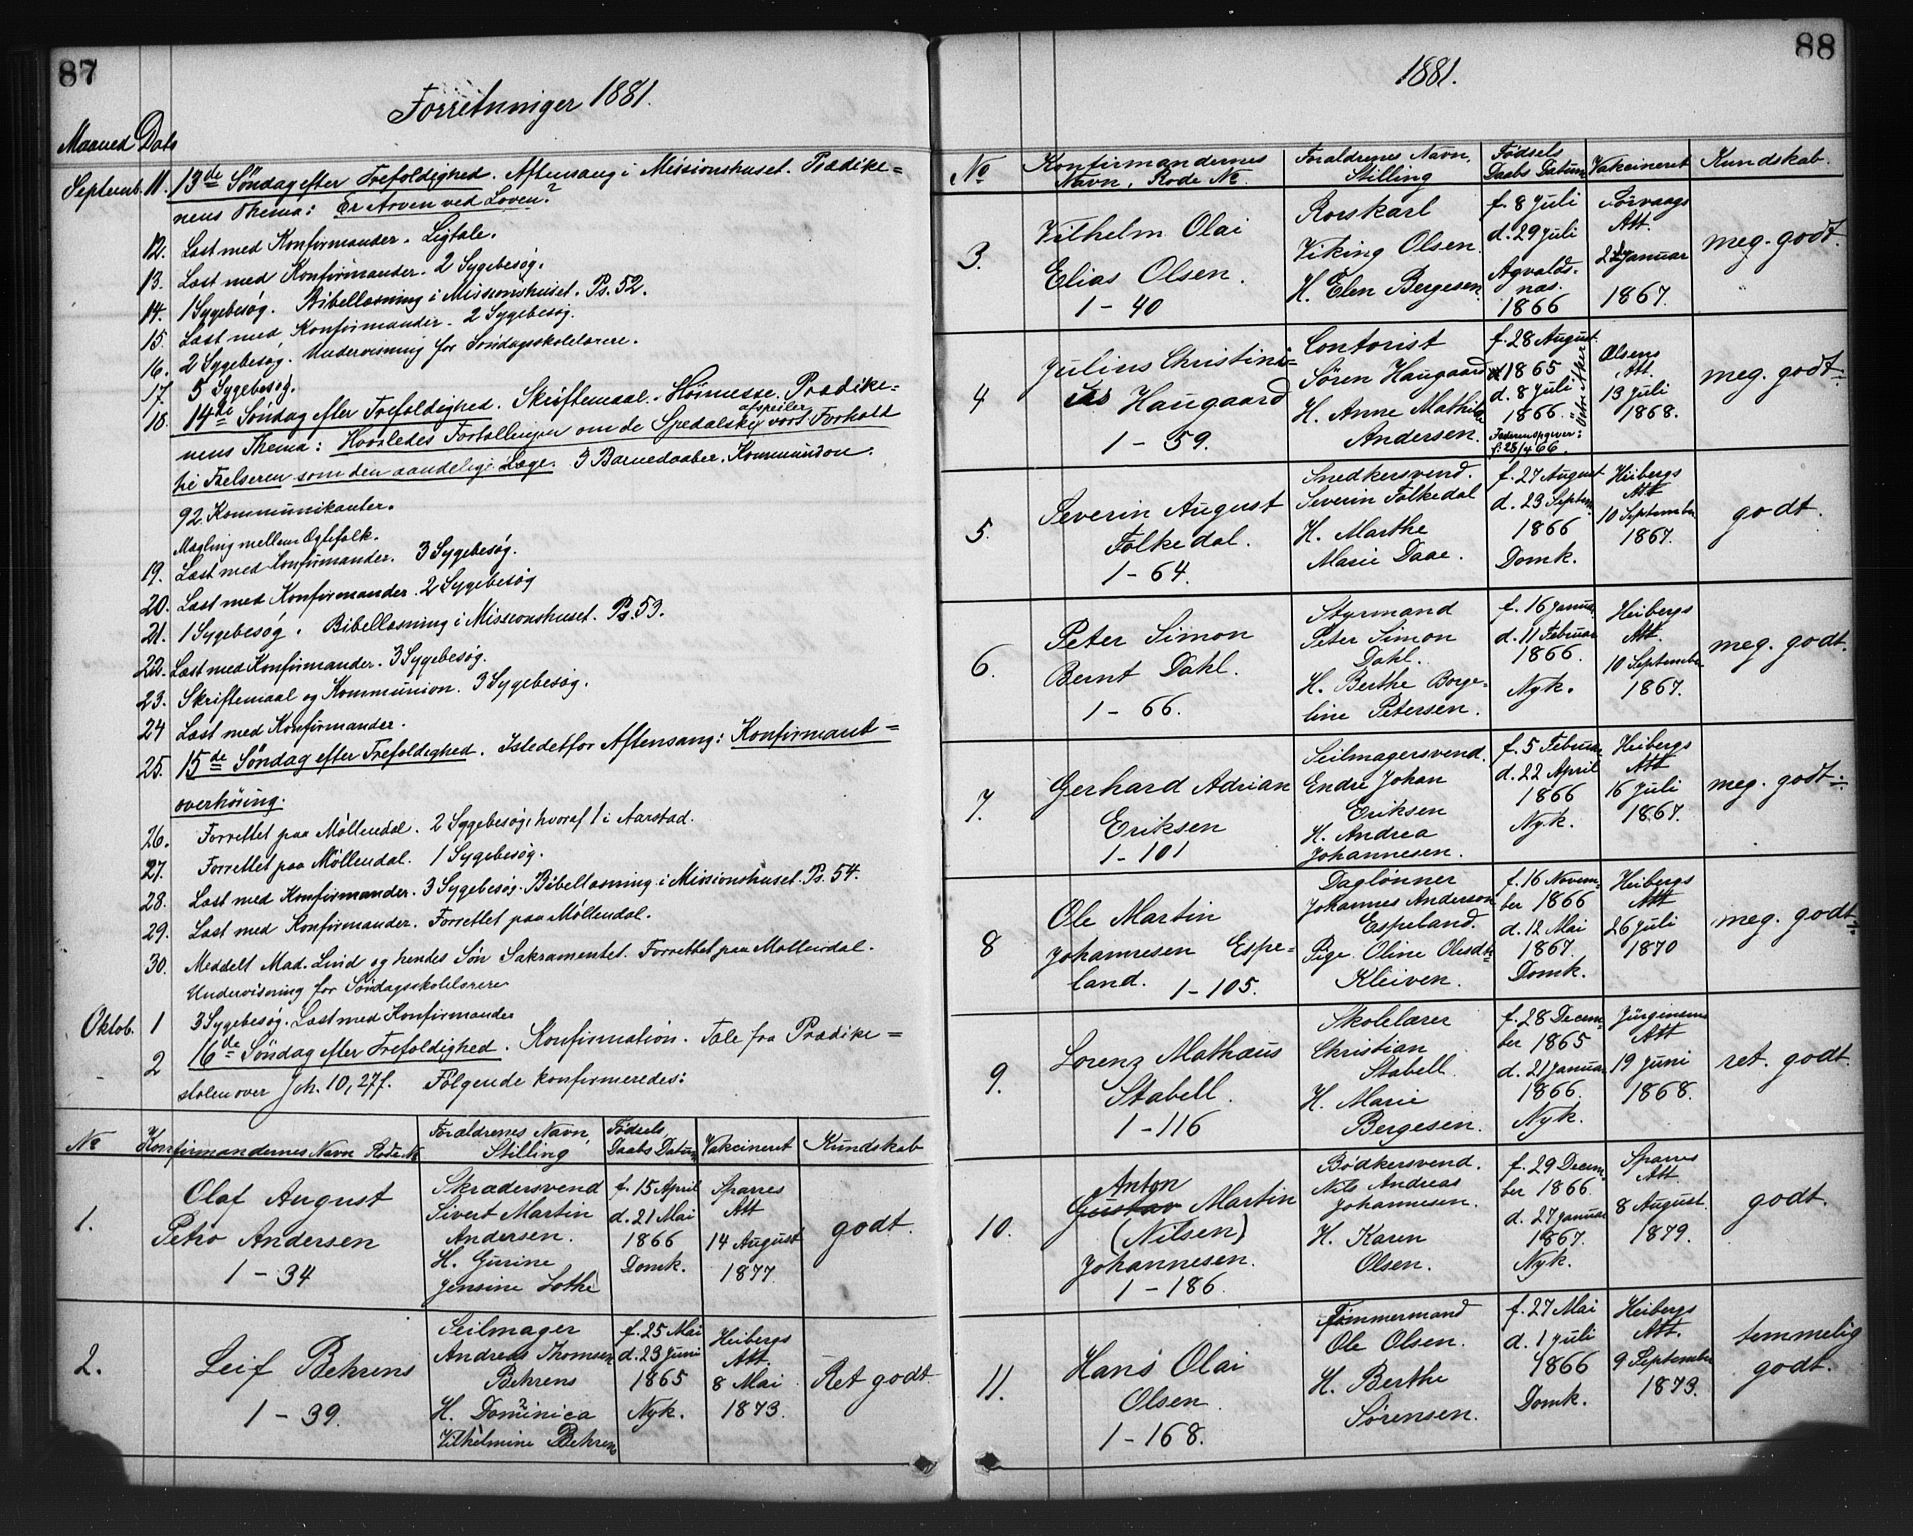 87
Forretninger 1881.
Maaned Dato
Septemb. 11. 13de Søndag efter Trefoldighed. Aftensang i Missionshuset. Prædike=
nens Thema: Er Arven ved Loven?
12. Læst med Konfirmander. Ligtale.
13. Læst med Konfirmander. 2 Sygebesøg.
14. 1 Sygebesøg. Bibellæsning i Missionshuset. Ps. 52.
15. Læst med Konfirmander. 2 Sygebesøg.
16. 2 Sygebesøg. Undervisning for Søndagsskolelærere.
17. 5 Sygebesøg.
18. 14de Søndag efter Trefoldighed. Skriftemaal. Høimesse. Prædike=
nens Thema: Hvorledes Fortællingen om de Spedalske afspeiler vort Forhold
til Frelseren som den aandelige Læge. 3 Barnedaaber. Kommunion.
92 Kommunikanter.
Mægling mellem Ægtefolk.
19. Læst med Konfirmander. 3 Sygebesøg.
20. Læst med Konfirmander. 2 Sygebesøg
21. 1 Sygebesøg. Bibellæsning i Missionshuset. Ps. 53.
22. Læst med Konfirmander. 3 Sygebesøg.
23. Skriftemaal og Kommunion. 3 Sygebesøg.
24 Læst med Konfirmander.
25. 15de Søndag efter Trefoldighed. Istedetfor Aftensang: Konfirmant=
overhøring.
26. Forrettet paa Møllendal. 2 Sygebesøg, hvoraf 1 i Aarstad.
27. Forrettet paa Møllendal. 1 Sygebesøg.
28. Læst med Konfirmander. 3 Sygebesøg. Bibellæsning i Missionshuset. Ps. 54.
29. Læst med Konfirmander. Forrettet paa Møllendal.
30. Meddelt Mad. Lind og hendes Søn Sakramentet. Forrettet paa Møllendal.
Undervisning for Søndagsskolelærere
Oktob. 1 3 Sygebesøg. Læst med Konfirmander
- 2 16de Søndag efter Trefoldighed. Konfirmation. Tale fra Prædike=
stolen over Joh. 10, 27f. Følgende konfirmeredes:
No Konfirmandernes Navn Rode No Forældrenes Navn, Stilling Fødsels Daabs Datum Vakcineret Kundskab
1. Olaf August Petro Andersen 1-34
Skrædersvend Sivert Martin Andersen. H. Gurine Jensine Lothe
f. 15 April d. 21 Mai 1866 Domk.
Sparres Att 14 August 1877
godt.
2. Leif Behrens 1-39.
Seilmager Andreas Thomsen Behrens H. Dominica Vilhelmine Behrens
f. 25 Mai d. 23 Juni 1865 Nyk.
Heibergs Att. 8 Mai 1873.
Ret godt
88
1881.
No Konfirmandernes Navn, Rode No. Forældrenes Navn, Stilling Fødsels Daabs Datum Vakcineret Kundskab.
3. Vilhelm Olai Elias Olsen. 1-40
Rorskarl Viking Olsen. H. Elen Bergesen
f. 8 Juli d. 29 Juli Agvalds-næs. 1866
Att. 22 Januar 1867.
meg. godt.
4 Julius Christini= us Haugaard 1-59.
Contorist Søren Haugaard H. Anne Mathilde Andersen.
f. 28 August 1865 d. 8 Juli 1866. Østre Aker
Faderen opgiver: f. 28/4 66.
Olsens Att. 13 Juli 1868.
meg. godt
5. Severin August Folkedal. 1-64.
Snedkersvend. Severin Folkedal H. Marthe Marie Daae.
f. 27 August d. 23 Septem. 1866 Domk.
Heibergs Att 10 September 1867.
godt.
6. Peter Simon Bernt Dahl. 1-66.
Styrmand Peter Simon Dahl. H. Berthe Borge-line Petersen.
f. 16 Januar d. 11 Februar 1866. Nyk.
Heibergs Att. 10 September 1867.
meg. godt.
7. Gerhard Adrian Eriksen 1-101
Seilmagersvend. Endre Johan Eriksen H. Andrea Johannesen.
f. 5 Februar d. 22 April 1866 Nyk.
Heibergs Att 16 Juli 1867.
meg. godt
8 Ole Martin Johannesen Espe=land. 1-105.
Daglønner Johannes Anderson Espeland. Pige. Oline Olesdtr Kleiven.
f. 16 Novem-ber 1866 d. 12 Mai 1867. Domk.
Heibergs Att 26 Juli 1870
meg. godt
9. Lorenz Mathæus Stabell. 1-116
Skolelærer Christian Stabell. H. Marie Bergesen.
f. 28 Decem-ber 1865 d. 21 Januar 1866. Nyk.
Jürgensens Att 19 Juni 1868.
ret. godt.
10. Anton Gustav Martin (Nilsen) Johannesen. 1-186.
Bødkersvend. Nils Andreas Johannesen. H. Karen Olsen.
f. 29 Decem-ber 1866. d. 27 Januar 1867. Nyk.
Sparres Att 8 August. 1879.
godt.
11. Hans Olai Olsen. 1-168.
Tømmermand Ole Olsen. H. Berthe Sørensen.
f. 27 Mai d. 1 Juli 1866 Domk.
Heibergs Att. 9 September 1873.
temmelig godt.